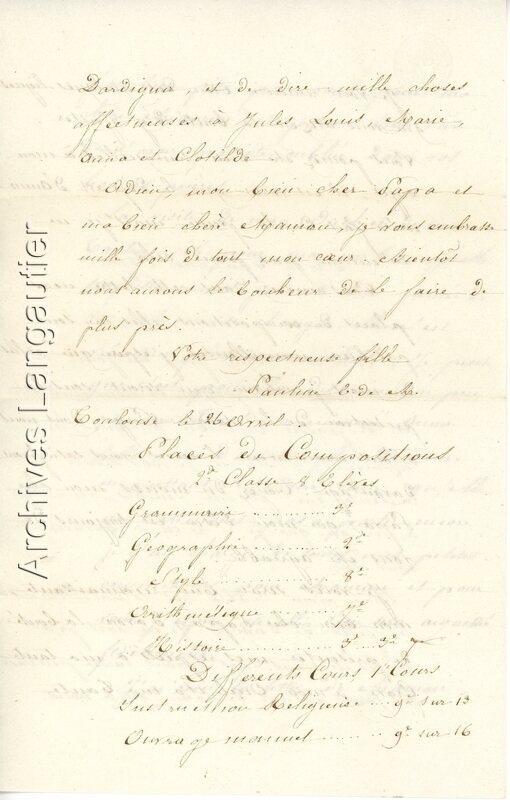 Dardignac, et de dire mille choses
affectueuses à Jules, Louis, Marie,
Anna et Clotilde
Adieu, mon bien cher Papa et
ma bien chère Maman, je vous embrasse
mille fois de tout mon cœur. Bientôt
nous aurons le bonheur de le faire de
plus près.
Votre respectueuse fille
Pauline de M.
Toulouse le 26 Avril.
Places de Compositions
2e Classe 8 Elèves
Grammaire
Géographie 2e
Style 8e
Arithmétique 7e
Histoire 3e
Différents Cours 1er Cours
Instruction Religieuse 9e sur 13
Ouvrage manuel 9e sur 16
Archives Langautier